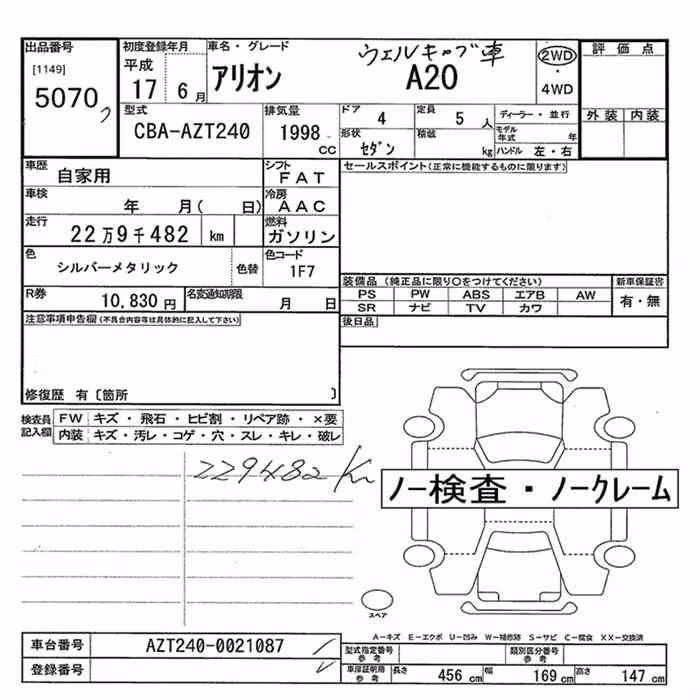 出品番号 初度登録年月 車名・グレード ウェルキャブ車 2WD 評価点
[1149] 平成 アリオン A20 ・
5070 17 6月 4WD
型式 排気量 ドア 4 定員 5人 ディーラー・並行 外装 内装
CBA-AZT240 1998 cc 形状 セダン 積載 kg モデル年式 年
ハンドル 左・右
車歴 自家用 シフト FAT セールスポイント(正常に機能するものに限ります)
車検 年 月( 日) 冷房 AAC
走行 22万9千482 km 燃料 ガソリン
色 シルバーメタリック 色替 色コード 1F7
装備品(純正品に限り○をつけてください) 新車保証書
R券 10,830円 名変通知期限 月 日 PS PW ABS エアB AW 有・無
SR ナビ TV カワ
注意事項申告欄(不具合内容等は具体的に記入して下さい) 後日品
修復歴 有〔箇所 〕
検査員記入欄 FW キズ・飛石・ヒビ割・リペア跡・×要
内装 キズ・汚レ・コゲ・穴・スレ・キレ・破レ
229482Km
ノー検査・ノークレーム
スペア
A-キズ E-エクボ U-凹み W-補修跡 S-サビ C-腐食 XX-交換済
車台番号 AZT240-0021087 型式指定番号 参考 類別区分番号 参考
登録番号 車庫証明用 参考 長さ 456cm 幅 169cm 高さ 147cm